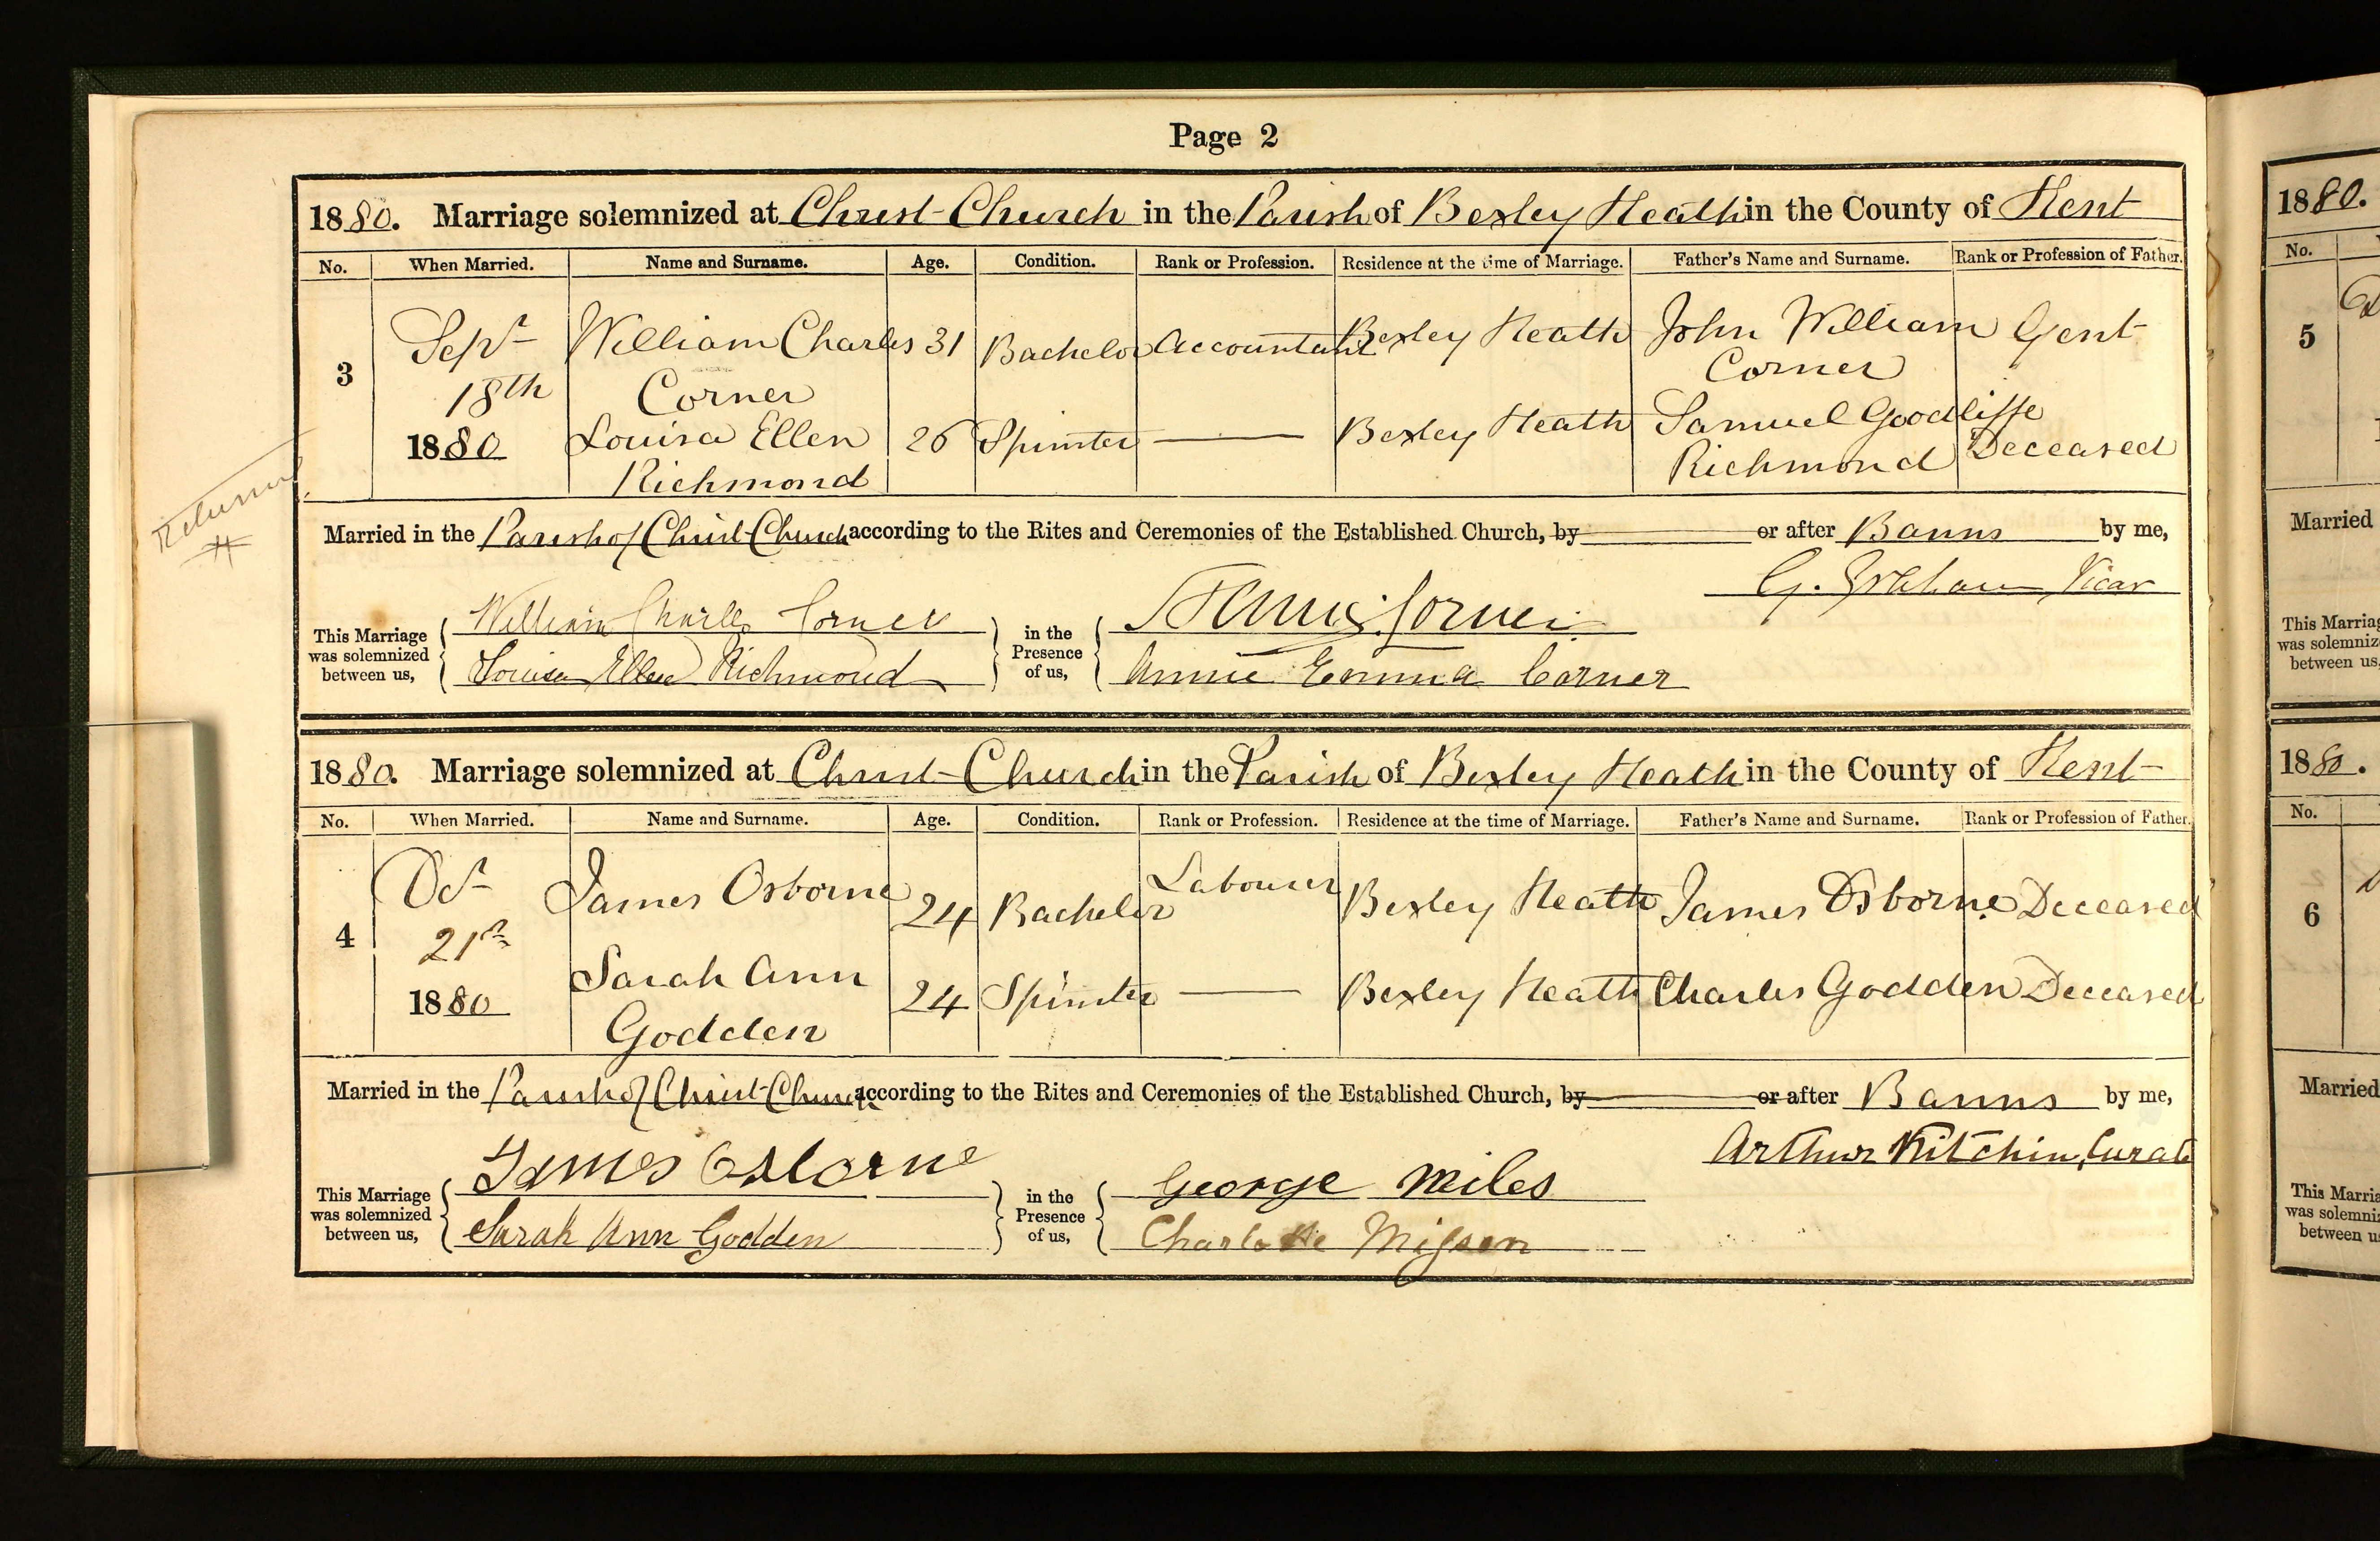 Page 2
1880. Marriage solemnized at Christ Church in the Parish of Bexley Heath in the County of Kent
No. When Married. Name and Surname. Age. Condition. Rank or Profession. Residence at the time of Marriage. Father's Name and Surname. Rank or Profession of Father.
3 Sept 18th 1880
William Charles Corner 31 Bachelor Accountant Bexley Heath John William Corner Gent
Louisa Ellen Richmond 26 Spinster — Bexley Heath Samuel Goodliffe Richmond Deceased
Returned
Married in the Parish of Christ Church according to the Rites and Ceremonies of the Established Church, by or after Banns by me,
G. Graham Vicar
This Marriage was solemnized between us, William Charles Corner
Louisa Ellen Richmond
in the Presence of us, Corner
Annie Emma Corner
1880. Marriage solemnized at Christ Church in the Parish of Bexley Heath in the County of Kent
No. When Married. Name and Surname. Age. Condition. Rank or Profession. Residence at the time of Marriage. Father's Name and Surname. Rank or Profession of Father.
4 Oct 21st 1880
James Osborne 24 Bachelor Labourer Bexley Heath James Osborne Deceased
Sarah Ann Godden 24 Spinster — Bexley Heath Charles Godden Deceased
Married in the Parish of Christ Church according to the Rites and Ceremonies of the Established Church, by or after Banns by me,
Arthur Kitchin, Curate
This Marriage was solemnized between us, James Osborne
Sarah Ann Godden
in the Presence of us, George Miles
Charlotte
1880.
No.
5
Married
This Marriag
was solemniz
between us,
1880.
No.
6
Married
This Marria
was solemni
between u